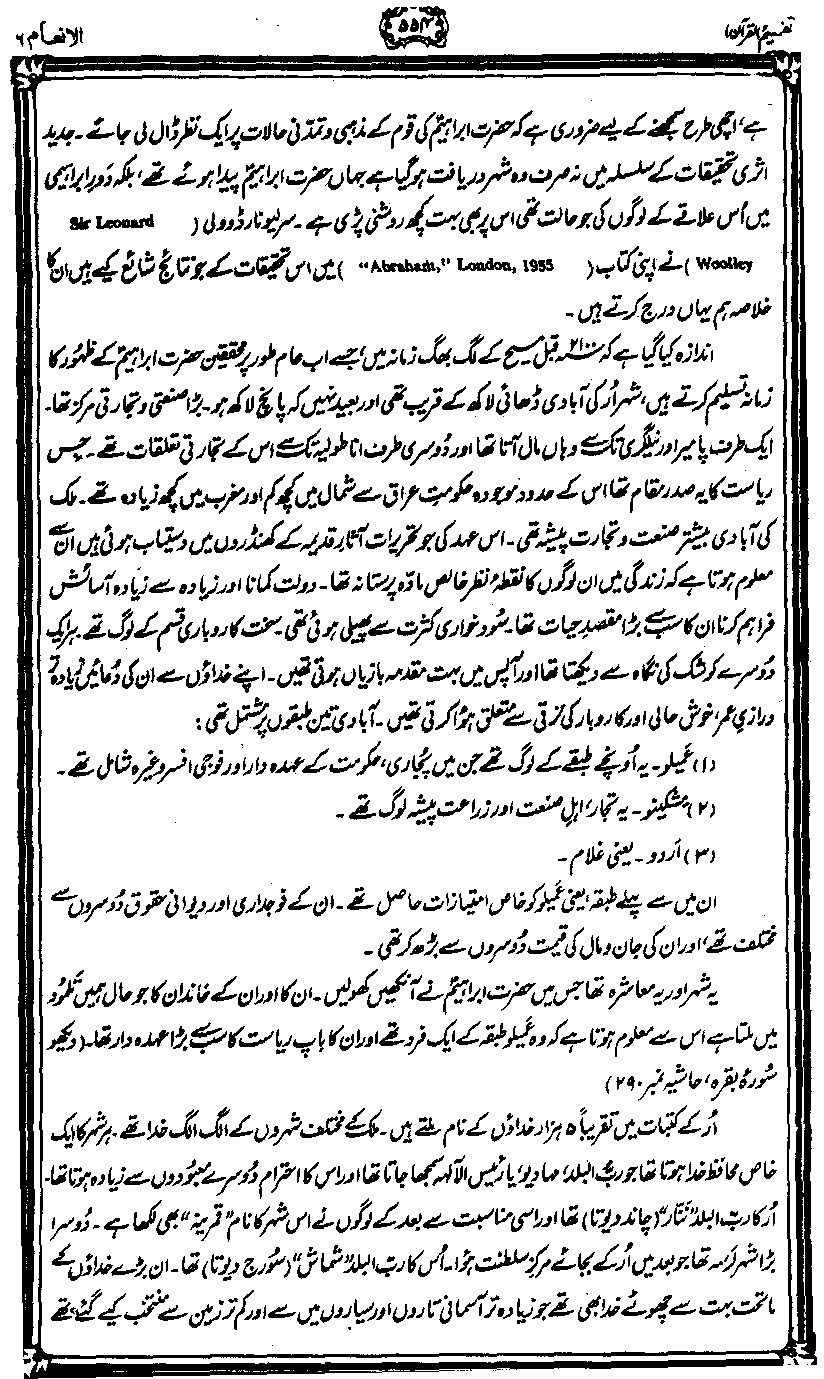 تفہیم القرآن ۱
۵۵۴
الانعام ۶
ہے، اچھی طرح سمجھنے کے لیے ضروری ہے کہ حضرت ابراہیمؑ کی قوم کے مذہبی و تمدنی حالات پر ایک نظر ڈال لی جائے۔ جدید
اثری تحقیقات کے سلسلہ میں نہ صرف وہ شہر دریافت ہو گیا ہے جہاں حضرت ابراہیمؑ پیدا ہوئے تھے، بلکہ دَورِ ابراہیمی
میں اُس علاقے کے لوگوں کی جو حالت تھی اس پر بھی بہت کچھ روشنی پڑی ہے۔ سر لیونارڈ وولی (Sir Leonard
Woolley) نے اپنی کتاب ("Abraham," London, 1955) میں اس تحقیقات کے جو نتائج شائع کیے ہیں ان کا
خلاصہ ہم یہاں درج کرتے ہیں۔
اندازہ کیا گیا ہے کہ ۲۱۰۰ قبل مسیح کے لگ بھگ زمانہ میں، جسے اب عام طور پر محققین حضرت ابراہیمؑ کے ظہُور کا
زمانہ تسلیم کرتے ہیں، شہر اُر کی آبادی ڈھائی لاکھ کے قریب تھی اور بعید نہیں کہ پانچ لاکھ ہو۔ بڑا صنعتی و تجارتی مرکز تھا۔
ایک طرف پامیر اور نیلگری تک سے وہاں مال آتا تھا اور دُوسری طرف اناطولیہ تک سے اس کے تجارتی تعلقات تھے۔ جس
ریاست کا یہ صدر مقام تھا اس کے حدود موجودہ حکومتِ عراق سے شمال میں کچھ کم اور مغرب میں کچھ زیادہ تھے۔ ملک
کی آبادی بیشتر صنعت و تجارت پیشہ تھی۔ اس عہد کی جو تحریرات آثارِ قدیمہ کے کھنڈروں میں دستیاب ہوئی ہیں ان سے
معلوم ہوتا ہے کہ زندگی میں ان لوگوں کا نقطۂ نظر خالص مادّہ پرستانہ تھا۔ دولت کمانا اور زیادہ سے زیادہ آسائش
فراہم کرنا ان کا سب سے بڑا مقصدِ حیات تھا۔ سُود خواری کثرت سے پھیلی ہوئی تھی۔ سخت کاروباری قسم کے لوگ تھے۔ ہر ایک
دُوسرے کو شک کی نگاہ سے دیکھتا تھا اور آپس میں بہت مقدمہ بازیاں ہوتی تھیں۔ اپنے خداؤں سے ان کی دُعائیں زیادہ تر
درازیِ عمر، خوش حالی اور کاروبار کی ترقی سے متعلق ہُوا کرتی تھیں۔ آبادی تین طبقوں پر مشتمل تھی:
(۱) عَمیلو۔ یہ اُونچے طبقے کے لوگ تھے جن میں پُجاری، حکومت کے عہدہ دار اور فوجی افسر وغیرہ شامل تھے۔
(۲) مِشکینو۔ یہ تجار، اہلِ صنعت اور زراعت پیشہ لوگ تھے۔
(۳) اَردو۔ یعنی غلام۔
ان میں سے پہلے طبقہ یعنی عَمیلو کو خاص امتیازات حاصل تھے۔ ان کے فوجداری اور دیوانی حقوق دُوسروں سے
مختلف تھے، اور ان کی جان و مال کی قیمت دُوسروں سے بڑھ کر تھی۔
یہ شہر اور یہ معاشرہ تھا جس میں حضرت ابراہیمؑ نے آنکھیں کھولیں۔ ان کا اور ان کے خاندان کا جو حال ہمیں تَلمُود
میں ملتا ہے اس سے معلوم ہوتا ہے کہ وہ عَمیلو طبقہ کے ایک فرد تھے اور ان کا باپ ریاست کا سب سے بڑا عہدہ دار تھا۔ (دیکھو
سُورۂ بقرہ، حاشیہ نمبر ۲۹۰)
اُر کے کتبات میں تقریباً ۵ ہزار خداؤں کے نام ملتے ہیں۔ ملک کے مختلف شہروں کے الگ الگ خدا تھے۔ ہر شہر کا ایک
خاص محافظ خدا ہوتا تھا جو ربُّ البلد، مہادیو، یا رئیس الآلہہ سمجھا جاتا تھا اور اس کا احترام دُوسرے معبُودوں سے زیادہ ہوتا تھا۔
اُر کا ربّ البلد "نَنّار" (چاند دیوتا) تھا اور اسی مناسبت سے بعد کے لوگوں نے اس شہر کا نام "قمرینہ" بھی لکھا ہے۔ دُوسرا
بڑا شہر لَرسہ تھا جو بعد میں اُر کے بجائے مرکزِ سلطنت ہُوا۔ اُس کا ربّ البلد "شماش" (سُورج دیوتا) تھا۔ ان بڑے خداؤں کے
ماتحت بہت سے چھوٹے خدا بھی تھے جو زیادہ تر آسمانی تاروں اور سیاروں میں سے اور کم تر زمین سے منتخب کیے گئے تھے